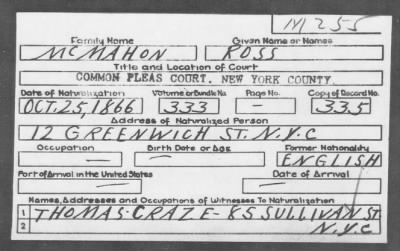 M 255
Family Name Given Name or Names
McMAHON ROSS
Title and Location of Court
COMMON PLEAS COURT, NEW YORK COUNTY.
Date of Naturalization Volume or Bundle No. Page No. Copy of Record No.
OCT. 25, 1866 333 — 335
Address of Naturalized Person
12 GREENWICH ST. N.Y.C
Occupation Birth Date or Age Former Nationality
— — ENGLISH
Port of Arrival in the United States Date of Arrival
— —
Names, Addresses and Occupations of Witnesses To Naturalization
1 THOMAS CRAZE - 85 SULLIVAN ST
2 N.Y.C